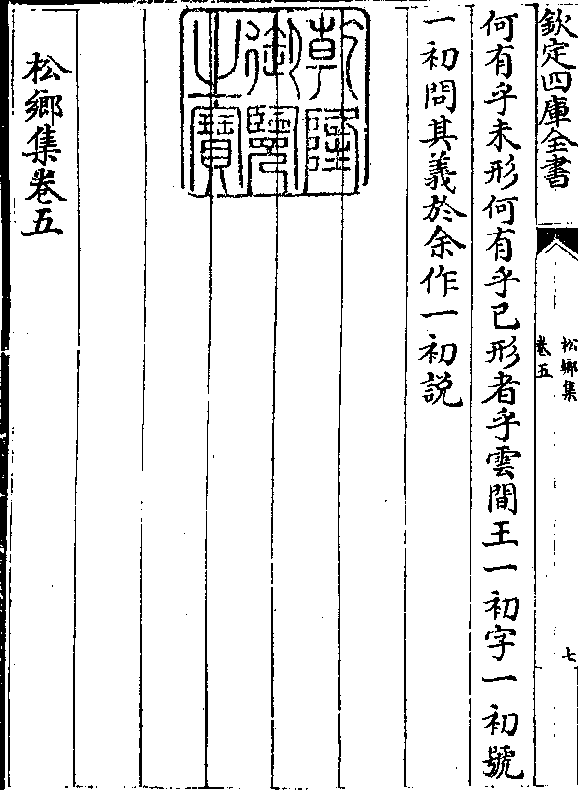 欽定四庫全書
松鄉集
卷五
七
何有乎未形何有乎已形者乎雲間王一初字一初號
一初問其義於余作一初説
乾隆
御覽
之寶
松鄉集卷五